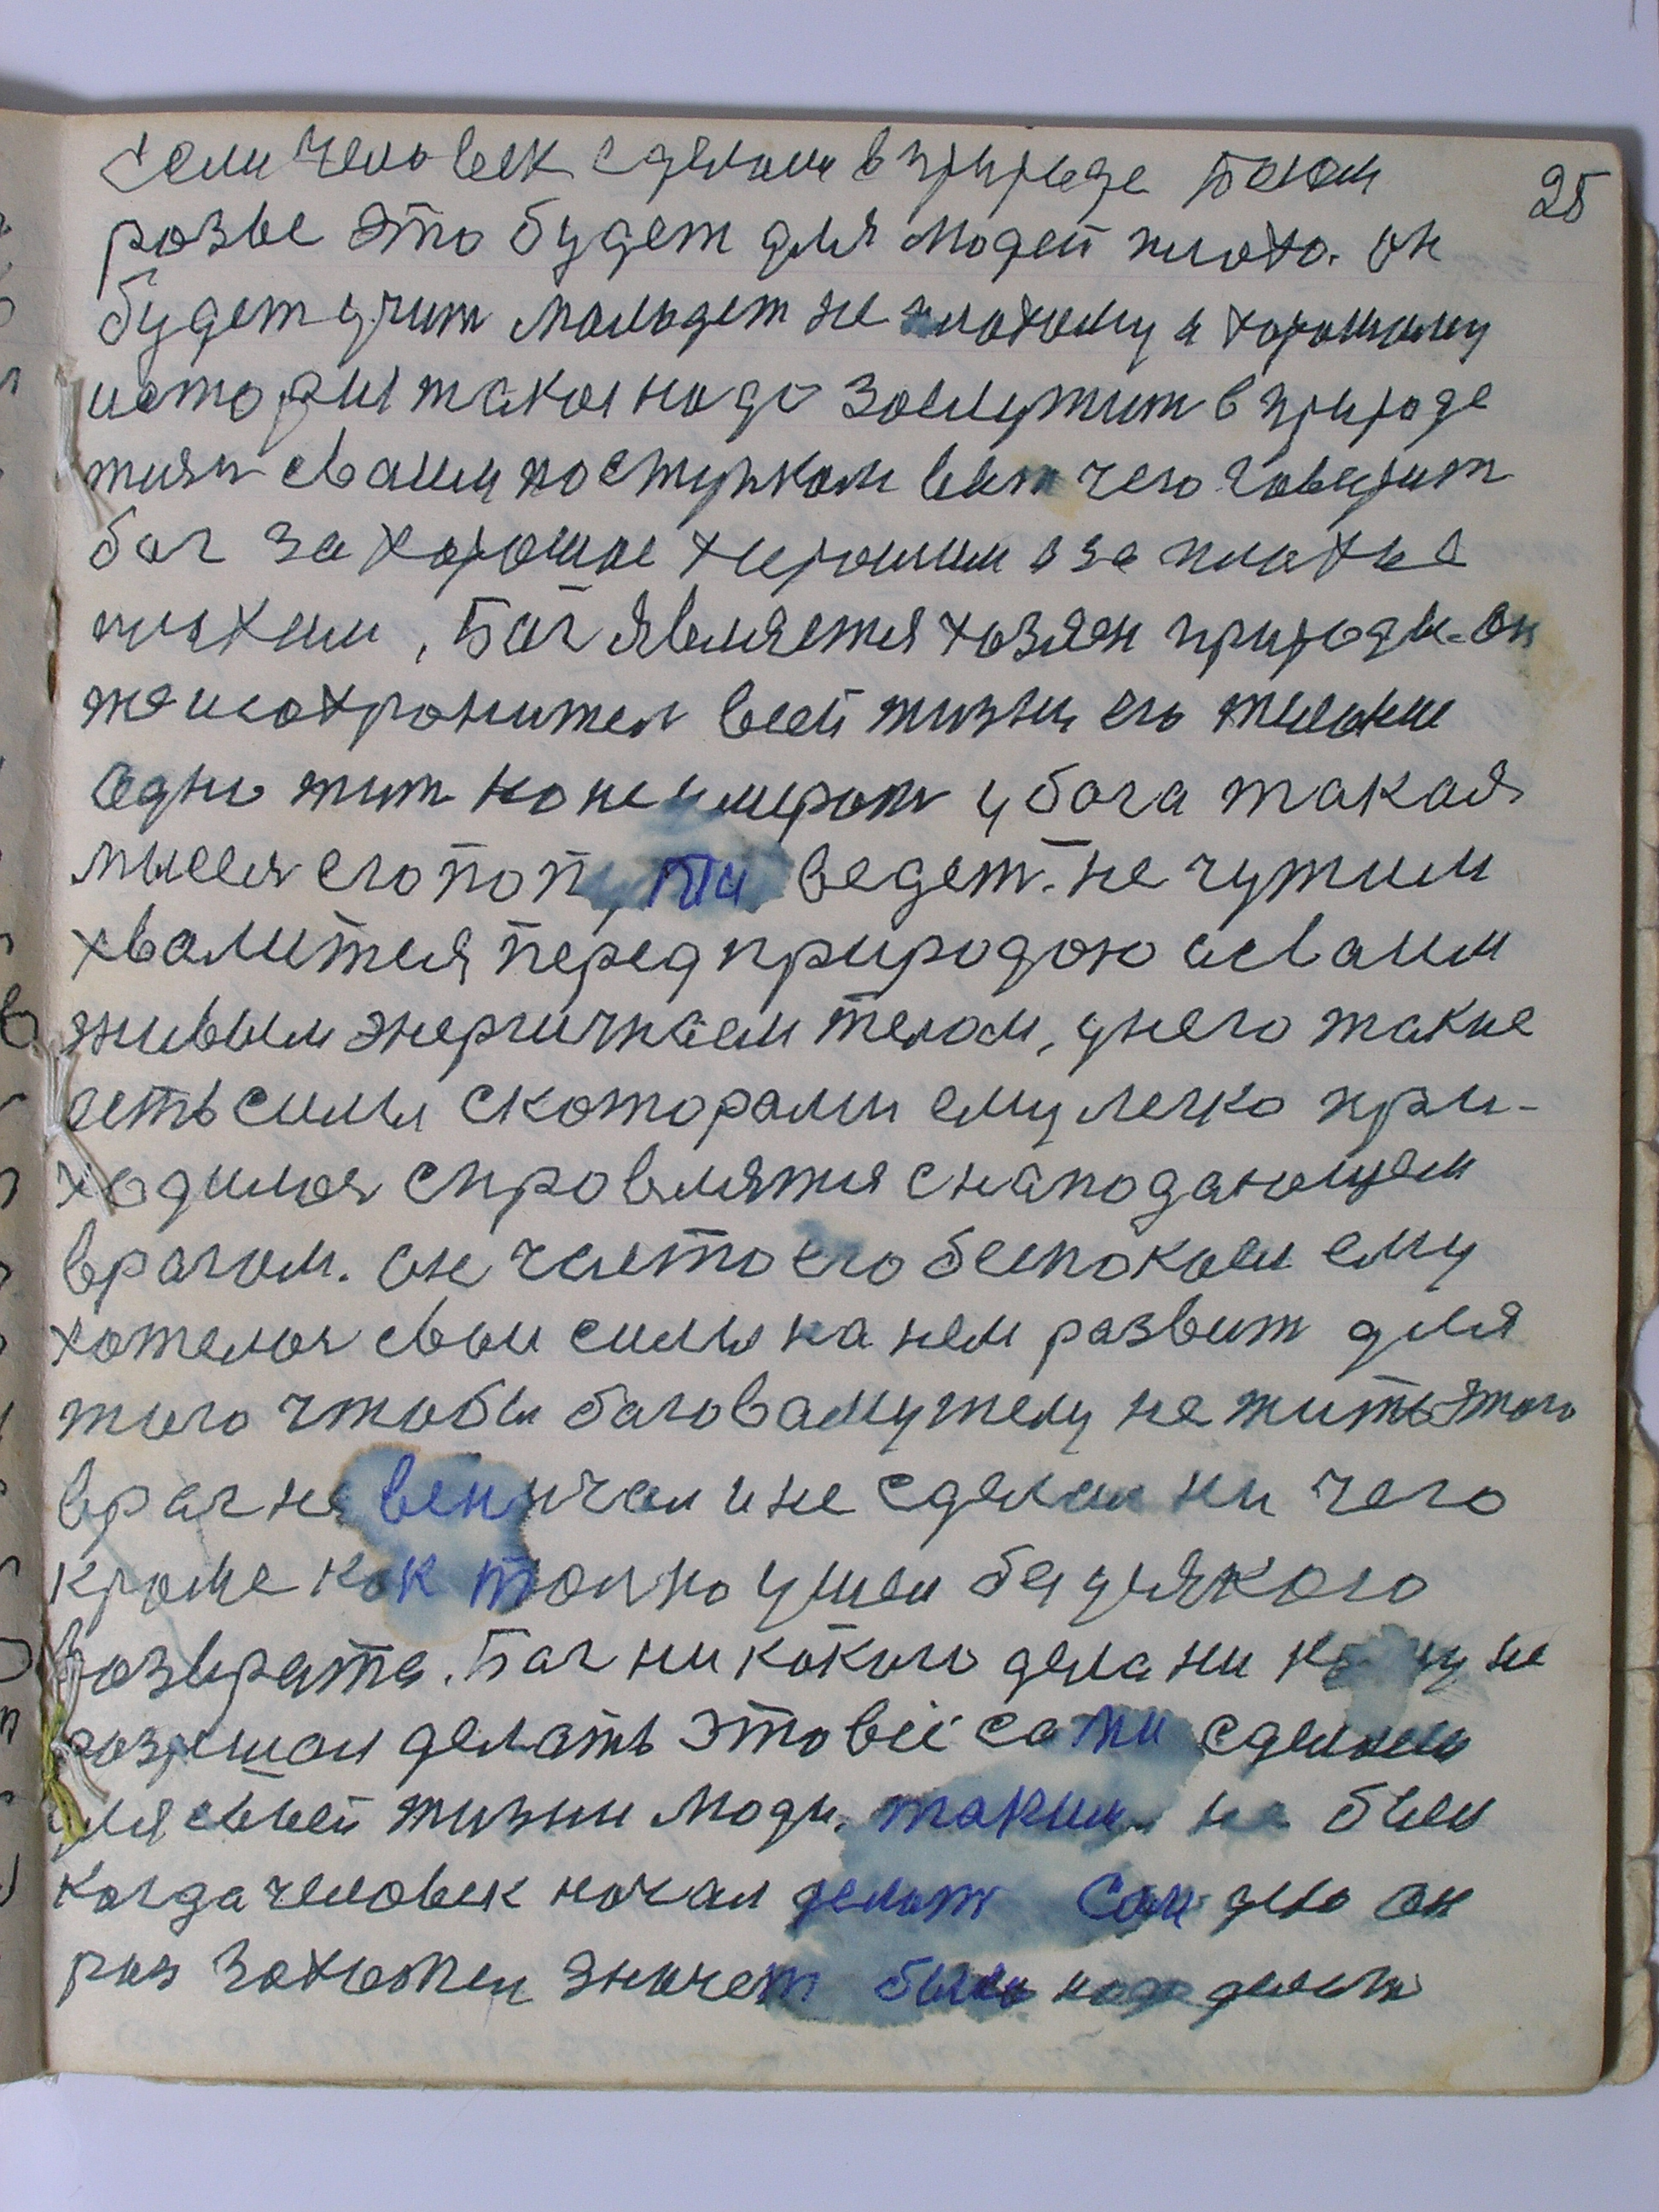 25
если человек сделался в природе Богом
розве это будет для людей плохо. он
будет учит молодет не плохому а хорошому
история такая надо заслужит в природе
тиян сваим поступком вит чего говорит
бог за хорошие хорошим а за плохие
плохим, Бог является хозяен природы. он
же и сохронител всей жизни его желание
одно жит но не умират у бога такая
мысля его по пути ведет. не чужим
хвалится перед природою а сваим
живым энергичнаем телом, у него такие
есть силы с которами ему легко при-
ходилоя справлятся с нападающем
врагом. он часто его беспокоил ему
хотелоя свои силы на нем развит для
тего чтобы боговаму телу не жить этого
враг не величал и не сделал ни чего
кроме как только ушел без всякого
возврата. Бог ни какого дела ни кому не
розришал делать это все сами сделали
для своей жизни люди. таким не был
когда человек начал делат сам дело он
раз захотел значет было надо делать